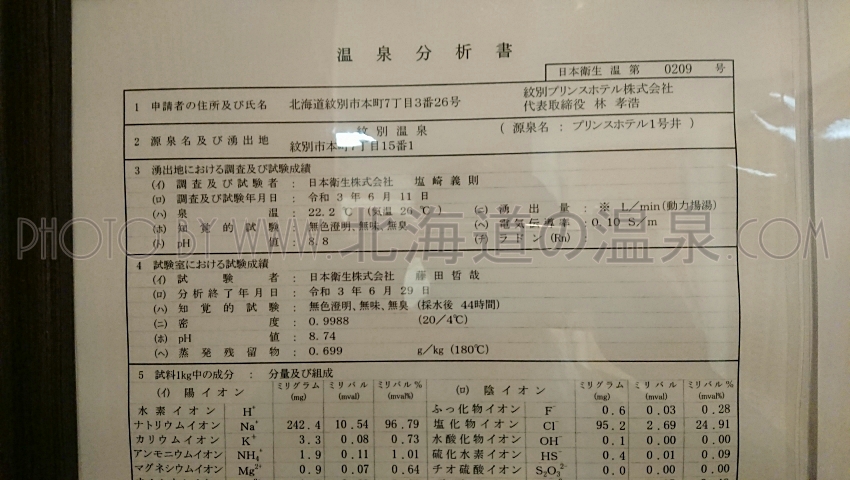 温泉分析書
日本衛生 温 第 0209 号
1 申請者の住所及び氏名 北海道紋別市本町7丁目3番26号 紋別プリンスホテル株式会社
代表取締役 林 孝浩
2 源泉名及び湧出地 紋別温泉 (源泉名:プリンスホテル1号井)
紋別市本町7丁目15番1
3 湧出地における調査及び試験成績
(イ) 調査及び試験者 : 日本衛生株式会社 塩崎義則
(ロ) 調査及試験年月日 : 令和 3 年 6 月 11 日
(ハ) 泉温 : 22.2 ℃ (気温 20 ℃) (ニ) 湧出量 : ※ L/min(動力揚湯)
(ホ) 知覚的試験 : 無色澄明、無味、無臭 (ヘ) 電気伝導率 : 0.10 S/m
(ト) pH値 : 8.8 (チ) ラドン(Rn)
PHOTO BY WWW.北海道の温泉.COM
4 試験室における試験成績
(イ) 試験者 : 日本衛生株式会社 藤田哲哉
(ロ) 分析終了年月日 : 令和 3 年 6 月 29 日
(ハ) 知覚的試験 : 無色澄明、無味、無臭 (採水後 44時間)
(ニ) 密度 : 0.9988 (20/4℃)
(ホ) pH値 : 8.74
(ヘ) 蒸発残留物 : 0.699 g/kg (180℃)
5 試料1kg中の成分 : 分量及び組成
(イ) 陽イオン ミリグラム(mg) ミリバル(mval) ミリバル%(mval%) (ロ) 陰イオン ミリグラム(mg) ミリバル(mval) ミリバル%(mval%)
水素イオン H⁺ ふっ化物イオン F⁻ 0.6 0.03 0.28
ナトリウムイオン Na⁺ 242.4 10.54 96.79 塩化物イオン Cl⁻ 95.2 2.69 24.91
カリウムイオン K⁺ 3.3 0.08 0.73 水酸化物イオン OH⁻ 0.1 0.00 0.00
アンモニウムイオン NH₄⁺ 1.9 0.11 1.01 硫化水素イオン HS⁻ 0.4 0.01 0.09
マグネシウムイオン Mg²⁺ 0.9 0.07 0.64 チオ硫酸イオン S₂O₃²⁻ 0.0 0.00 0.00